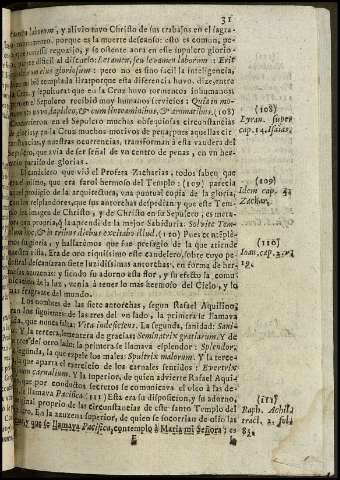 31
laborum, y alivio tuvo Christo de sus trabajos en el sagra-
monumento, porque es la muerte descanso: esto es comun, pe-
regozijo, y se ostente aora en este sepulcro glorio-
dificil al discurso: Letamen, seu levamen laborum: Erit
eius gloriosum: pero no es sino facil la inteligencia,
templada llora; porque esta diferencia huvo, dize, entre
y sepultura: que en la Cruz huvo tormentos inhumanos:
el Sepulcro recibió muy humanos servicios: Quia in mo-
& cum linteaminibus, & aromatibus. (108)
en el Sepulcro muchos obsequiosas circunstancias
glorias; y en la Cruz muchos motivos de pena; pues aquellas cir-
cunstancias, y nuestras ocurrencias, transforman à esta vandera del
Sepulcro, que avia de ser señal de vn centro de penas, en vn her-
paraiso de glorias.
El candelero que viò el Profeta Zacharias, todos saben que
que era farol hermoso del Templo: (109) parecia
prodigio de la arquitectura, vna puntual copia de la gloria,
resplandores, que sus antorchas despedian: y que este Tem-
imagen de Christo, y de Christo en su Sepulcro, es meta-
propria, à la aciende de la mejor Sabiduria. Solvite Tem-
hoc, & in tribus diebus excitabo illud. (110) Pues contemple-
su gloria, y hallarèmos que fue presagio de la que atiende
esta. Era de oro riquissimo este candelero, sobre cuyo pe-
descansavan siete lucidissimas antorchas, en forma de her-
azuzenas; y siendo su adorno esta flor, y su efecto la comu-
de la luz, venia à tener lo mas hermoso del Cielo, y lo
fragante del mundo.
Los nombres de las siete antorchas, segun Rafael Aquilino,
los siguientes: de las tres del vn lado, la primera se llamava
que nunca falta: Vita indeficiens. La segunda, sanidad: Sani-
Y la tercera, sementera de gracias: Seminatrix gratiarum. Y de
tres del otro lado: la primera se llamava esplendor: Splendor.
segunda, la que expele los males: Spultrix malorum. Y la terce-
que aparta el exercicio de los carnales sentidos: Evertrix
carnalium. Y la superior, de quien advierte Rafael Aqui-
que por conductos secretos se comunicava el olco à las de-
llamava Pacifica. (111) Esta era su disposicion, y su adorno,
proprio de las circunstancias de este santo Templo del
En la azuzena superior, de quien se socorrian de olio las
y que se llamava Pacifica, contemplo à Maria mi Señora; es
E
(108)
Lyran. super
cap. 14. Isaias.
(109)
Idem cap.
Zachar.
(110)
Ioan. cap. 2.
19.
(111)
Raph. Achila
tract. 2. fol.
83.